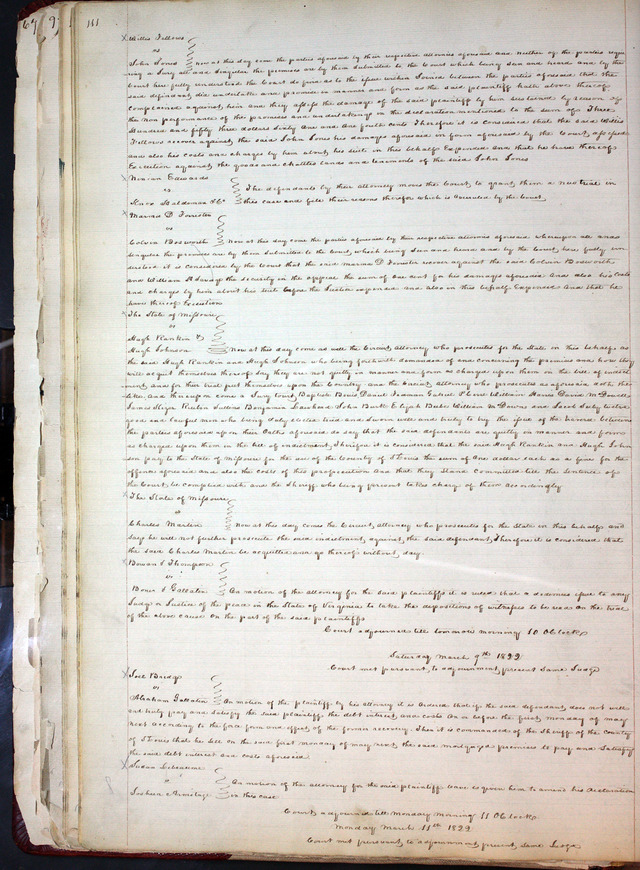 151
Willis Fellows
vs
John Jones Now at this day come the parties aforesaid by their respective attornies aforesaid and neither of the parties requi
ring a Jury all and singular the premises are by them submitted to the Court which being seen and heard and by the
Court here fully understood the Court do find as to the issue within Joined between the parties aforesaid that the
said defendant did undertake and promise in manner and form as the said plaintiff hath above thereof
complained against him and they assess the damage of the said plaintiff by him sustained by reason of
the non performance of the promises and undertakings in the declaration mentioned to the sum of Three
Hundred and fifty three dollars Sixty One and One fourth Cents Therefore it is considered that the said Willis
Fellows recover against the said John Jones his damages aforesaid in form aforesaid by the Court assessed
and also his costs and charges by him about his Suit in this behalf Expended and that he have thereof
Execution against the goods and chattles lands and tenements of the said John Jones
Ninian Edwards
vs The defendants by their attorney move the Court to grant them a new trial in
this case and file their reasons therefor which is overruled by the Court
D Forrester
vs
Bosworth Now at this day come the parties aforesaid by their respective attornies aforesaid whereupon all and
singular the premises are by them Submitted to the Court which being Seen and heard and by the Court here fully un
derstood it is considered by the Court that the said D Forrester recover against the said Bosworth
and William H Savage the security in the appeal the sum of one cent for his damages aforesaid and also his Costs
and charges by him about his Suit before the Justice expended and also in this behalf Expended and that he
have thereof Execution
The State of Missouri
vs
Hugh Rankin &
Hugh Johnson Now at this day come as well the Circuit Attorney who prosecutes for the State in this behalf as
the said Hugh Rankin and Hugh Johnson who being forthwith demanded of and concerning the premises and how they
will acquit themselves thereof say they are not guilty in manner and form as charged upon them in the bill of indict
ment and for their trial put themselves upon the Country and the Circuit Attorney who prosecutes as aforesaid doth the
like and thereupon come a Jury towit Baptiste David Gabriel William David
James Reuben Benjamin John Burk Elijah William Downs and Jacob twelve
good and lawful men who being duly elected tried and Sworn the truth to Say upon the issue of the traverse between
the parties aforesaid upon their Oaths aforesaid do say that the said defendants are guilty in manner and form
as charged upon them in the bill of indictment Therefore it is considered that the said Hugh Rankin and Hugh John
son pay to the State of Missouri for the use of the County of St Louis the sum of One dollar each as a fine for the
offence aforesaid and also the costs of this prosecution and that they Stand Committed till the Sentence of
the Court be complied with and the Sheriff who being present takes charge of them accordingly
The State of Missouri
vs
Charles Martin Now at this day comes the Circuit Attorney who prosecutes for the State in this behalf and
says he will not further prosecute the said indictment against the said defendant Therefore it is considered that
the said Charles Martin be acquitted and go thereof without day
& Thompson
vs
& Gallatin On motion of the attorney for the said plaintiffs it is ruled that a dedimus issue to any
Judge or Justice of the peace in the State of Virginia to take the depositions of witnesses to be read on the trial
of the above cause On the part of the said plaintiffs
Court adjourned till tomorrow morning 10 Oclock
Saturday March 9th 1822
Court met pursuant to adjournment present Same Judge
vs
Abraham Gallatin On motion of the plaintiff by his attorney it is Ordered that if the said defendant does not well
and truly pay and Satisfy the said plaintiff the debt interest and costs On or before the first Monday of May
next according to the force form and effect of the former recovery Then it is commanded of the Sheriff of the County
of St Louis that he Sell on the said first Monday of May next the said mortgaged premises to pay and Satisfy
the said debt interest and costs aforesaid
Susan
vs On motion of the attorney for the said plaintiff leave is given him to amend his declaration
Armitage in this case
Court adjourned till Monday Morning 11 Oclock
Monday March 11th 1822
Court met pursuant to adjournment present Same Judge